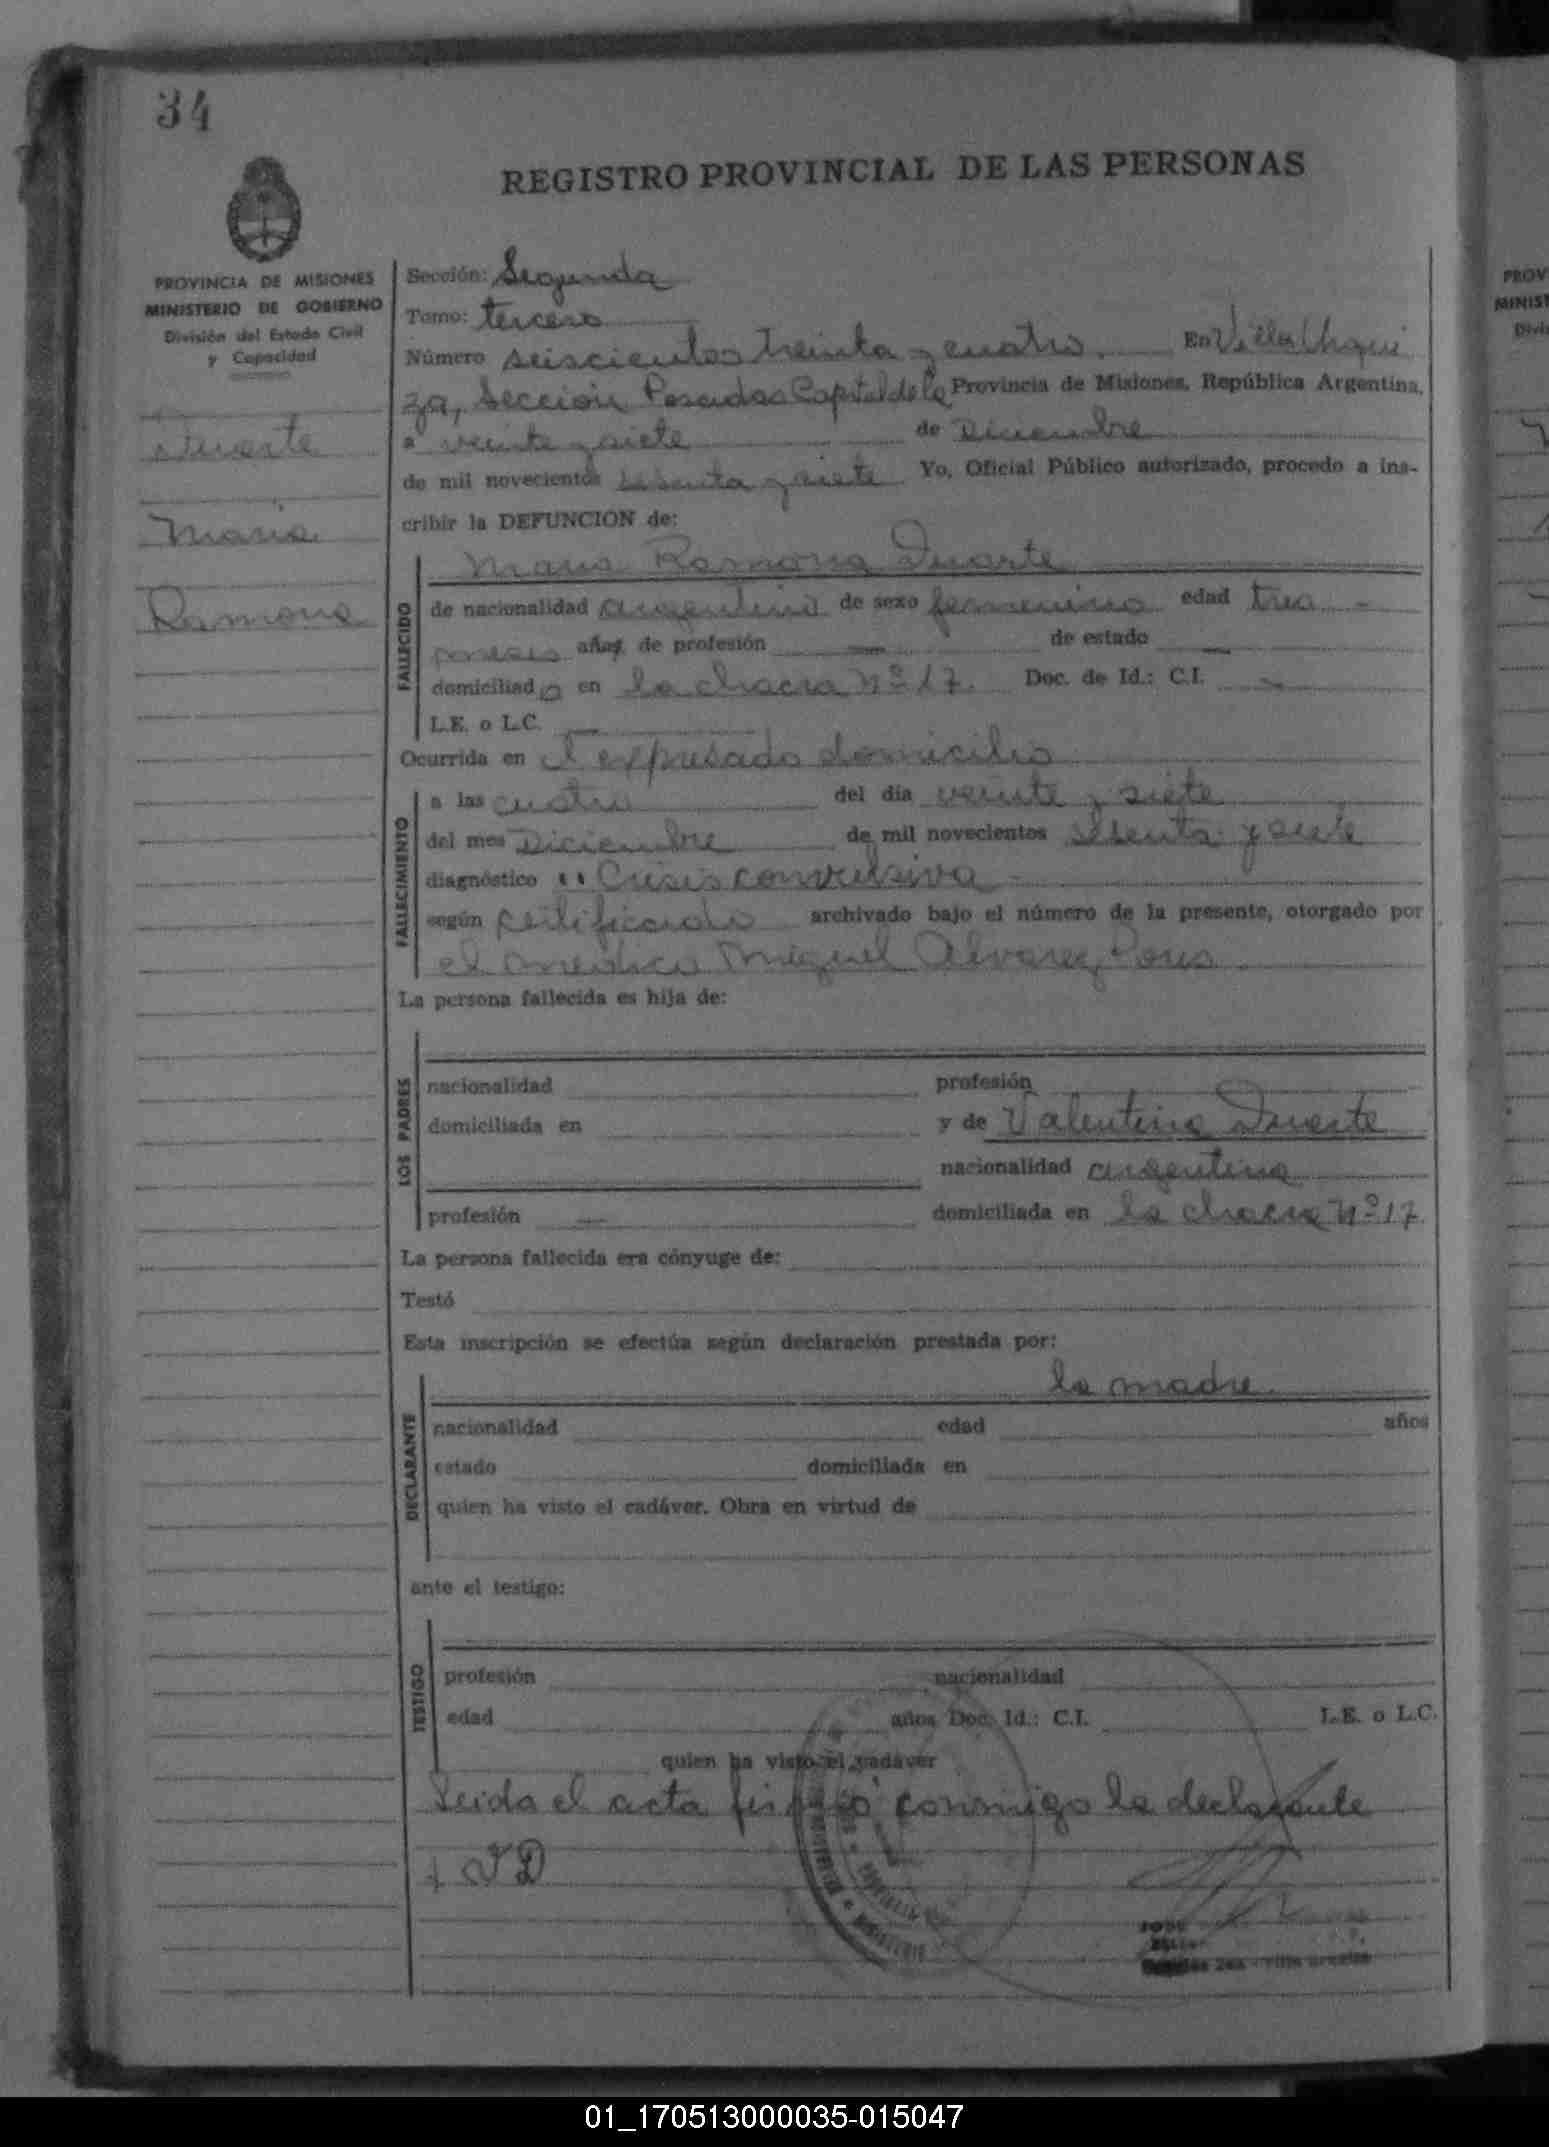 34
REGISTRO PROVINCIAL DE LAS PERSONAS
PROVINCIA DE MISIONES
MINISTERIO DE GOBIERNO
División del Estado Civil
y Capacidad
Duarte
Maria
Ramona
Sección: Segunda
Tomo: tercero
Número seiscientos treinta y cuatro. En Villa Urqui
za, Sección Posadas Capital de la Provincia de Misiones, República Argentina,
a veinte y siete de Diciembre
de mil novecientos sesenta y siete Yo, Oficial Público autorizado, procedo a ins-
cribir la DEFUNCION de:
Maria Ramona Duarte
FALLECIDO
de nacionalidad argentina de sexo femenino edad tres
meses años de profesión — de estado —
domiciliado en la chacra Nº 17. Doc. de Id.: C.I. —
L.E. o L.C. —
Ocurrida en el expresado domicilio
FALLECIMIENTO
a las cuatro del día veinte y siete
del mes Diciembre de mil novecientos sesenta y siete
diagnóstico "Crisis convulsiva
según certificado archivado bajo el número de la presente, otorgado por
el medico Miguel Alvarez
La persona fallecida es hija de:
LOS PADRES
nacionalidad profesión
domiciliada en y de Valentina Duarte
nacionalidad argentina
profesión — domiciliada en la chacra Nº 17.
La persona fallecida era cónyuge de:
Testó
Esta inscripción se efectúa según declaración prestada por:
la madre.
DECLARANTE
nacionalidad edad años
estado domiciliada en
quien ha visto el cadáver. Obra en virtud de
ante el testigo:
TESTIGO
profesión nacionalidad
edad años Doc. Id.: C.I. L.E. o L.C.
quien ha visto el cadáver
Leida el acta firmó conmigo la declarante
VD
01_170513000035-015047